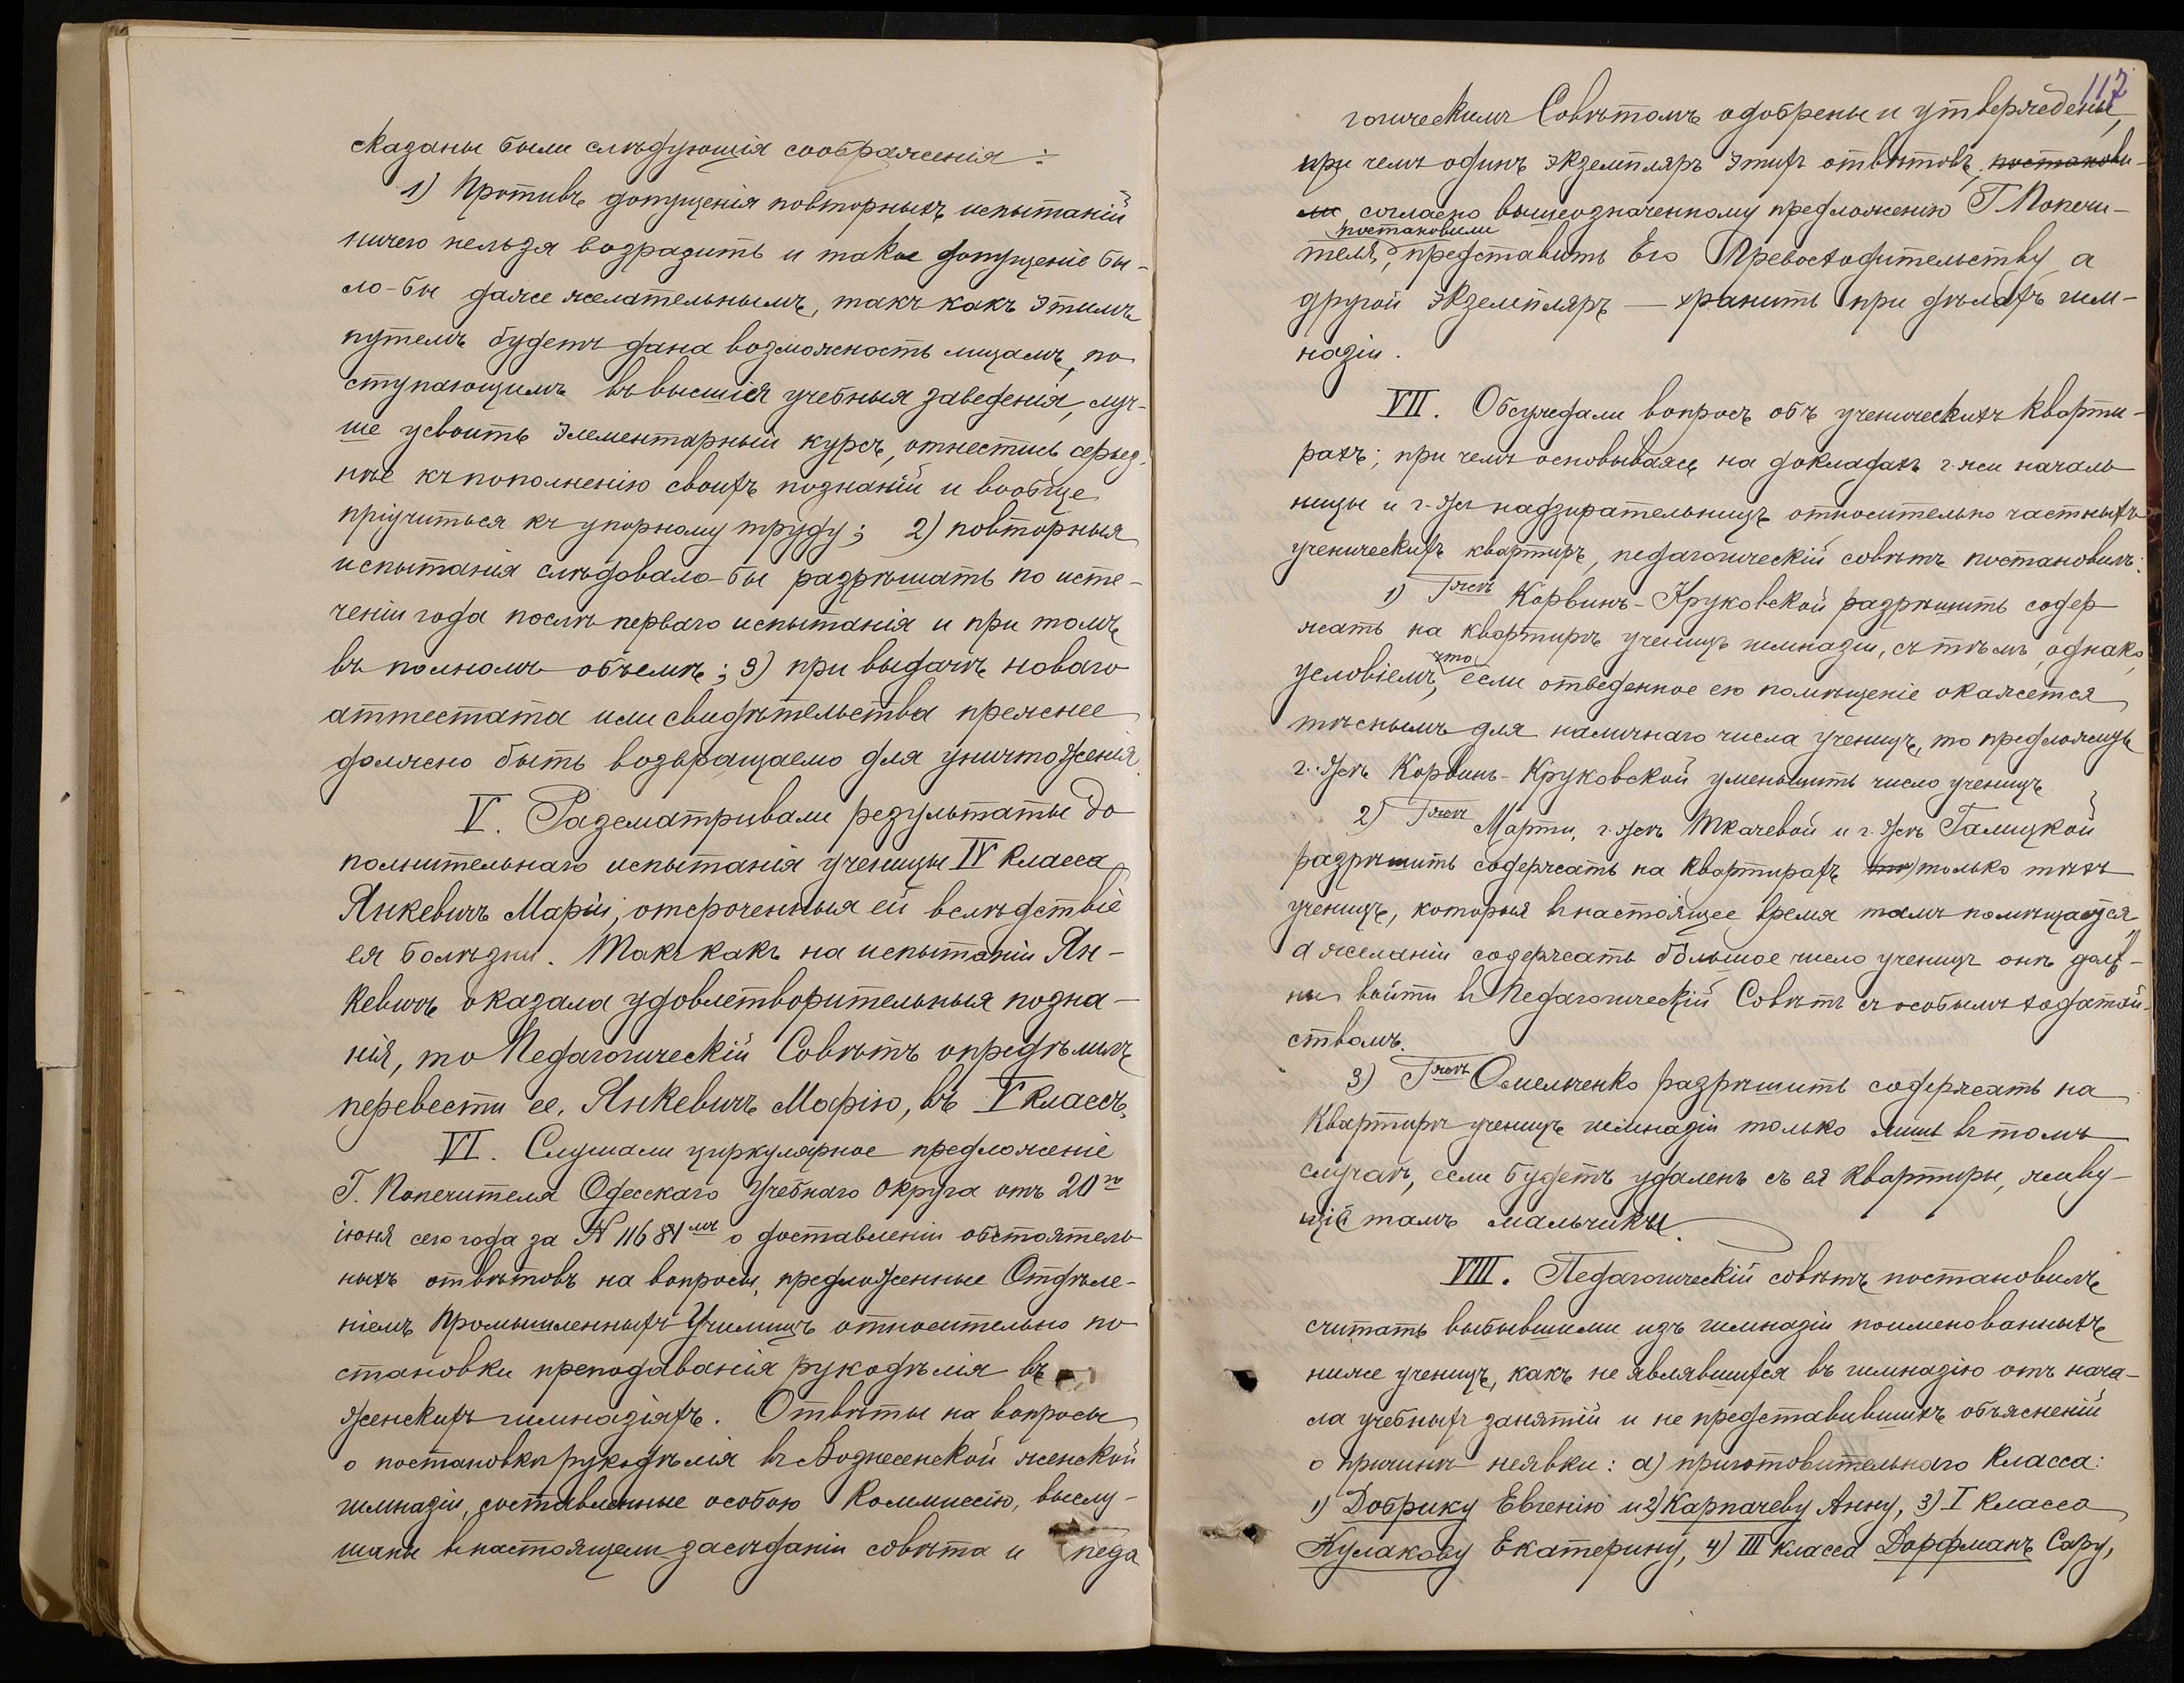 сказаны были слѣдующія соображенія:
1) Противъ допущенія повторныхъ испытаній
ничего нельзя возразить и такое допущеніе бы-
ло-бы даже желательнымъ, такъ какъ этимъ
путемъ будетъ дана возможность лицамъ, по
ступающимъ въ высшія учебныя заведенія, луч-
ше усвоить элементарный курсъ, отнестись серьез-
нѣе къ пополненію своихъ познаній и вообще
пріучиться къ упорному труду; 2) повторныя
испытанія слѣдовало-бы разрѣшать по исте-
ченіи года послѣ перваго испытанія и при томъ
въ полномъ объемѣ; 3) при выдачѣ новаго
аттестата или свидѣтельства прежнее
должно быть возвращаемо для уничтоженія.
V. Разсматривали результаты до
полнительнаго испытанія ученицы IV класса
Янкевичъ Маріи, отсроченныя ей вслѣдствіе
ея болѣзни. Такъ какъ на испытаніи Ян-
кевичъ оказала удовлетворительныя позна-
нія, то Педагогическій Совѣтъ опредѣлилъ
перевести ее, Янкевичъ Марію, въ V классъ.
VI. Слушали циркулярное предложеніе
Г. Попечителя Одесскаго Учебнаго Округа отъ 20го
іюня сего года за № 11681мъ о доставленіи обстоятель
ныхъ отвѣтовъ на вопросы, предложенные Отдѣле-
ніемъ Промышленныхъ Училищъ относительно по
становки преподаванія рукодѣлія въ
женскихъ гимназіяхъ. Отвѣты на вопросы
о постановкѣ рукодѣлія въ Вознесенской женской
гимназіи, составленные особою Коммиссію, выслу-
шаны въ настоящемъ засѣданіи совѣта и педа
117
гогическимъ Совѣтомъ одобрены и утверждены,
при чемъ одинъ экземпляръ этихъ отвѣтовъ, постанови-
ли, согласно вышеозначенному предложенію Г. Попечи-
постановили
теля, представить Его Превосходительству, а
другой экземпляръ — хранить при дѣлахъ гим-
назіи.
VII. Обсуждали вопросъ объ ученическихъ кварти-
рахъ; при чемъ основываясь на докладахъ г-жи началь
ницы и г-жъ надзирательницъ относительно частныхъ
ученическихъ квартиръ, педагогическій совѣтъ постановилъ:
1) Г-жѣ Корвинъ-Круковской разрѣшить содер
жать на квартирѣ ученицъ гимназіи, съ тѣмъ, однако,
что
условіемъ, если отведенное ею помѣщеніе окажется
тѣснымъ для наличнаго числа ученицъ, то предложить
г-жѣ Корвинъ-Круковской уменьшить число ученицъ.
2) Г-жѣ Марти, г-жѣ Ткачевой и г-жѣ Галицкой
разрѣшить содержать на квартирахъ только тѣхъ
ученицъ, которыя въ настоящее время тамъ помѣщаются,
а желаніи содержать бо́льшое число ученицъ онѣ долж-
ны войти въ Педагогическій Совѣтъ съ особымъ ходатай-
ствомъ.
3) Г-жѣ Омельченко разрѣшить содержать на
квартирѣ ученицъ гимназіи только лишь въ томъ
случаѣ, если будетъ удаленъ съ ея квартиры, живу-
щій тамъ мальчикъ.
VIII. Педагогическій совѣтъ постановилъ
считать выбывшими изъ гимназіи поименованныхъ
ниже ученицъ, какъ не являвшихся въ гимназію отъ нача-
ла учебныхъ занятій и не представившихъ объясненій
о причинѣ неявки: а) приготовительнаго класса:
1) Добрику Евгенію и 2) Карпачеву Анну, 3) I класса
Кулакову Екатерину, 4) III класса Дорфманъ Сару,